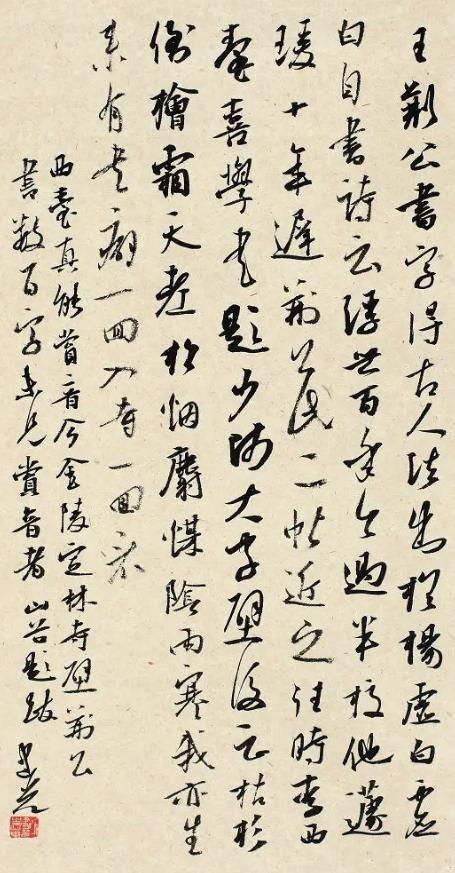 王荆公書字得古人法出於楊虛白虛
白自書詩云浮世百年今過半校他蘧
瑗十年遲荆公此二帖近之往時李西
臺喜學書題少師大字壁後云枯杉
倒檜霜天老松烟麝煤陰雨寒我亦生
来有書癖一回入寺一回看
西臺真能賞音今金陵定林寺壁荆公
書數百字未見賞音者山谷題跋